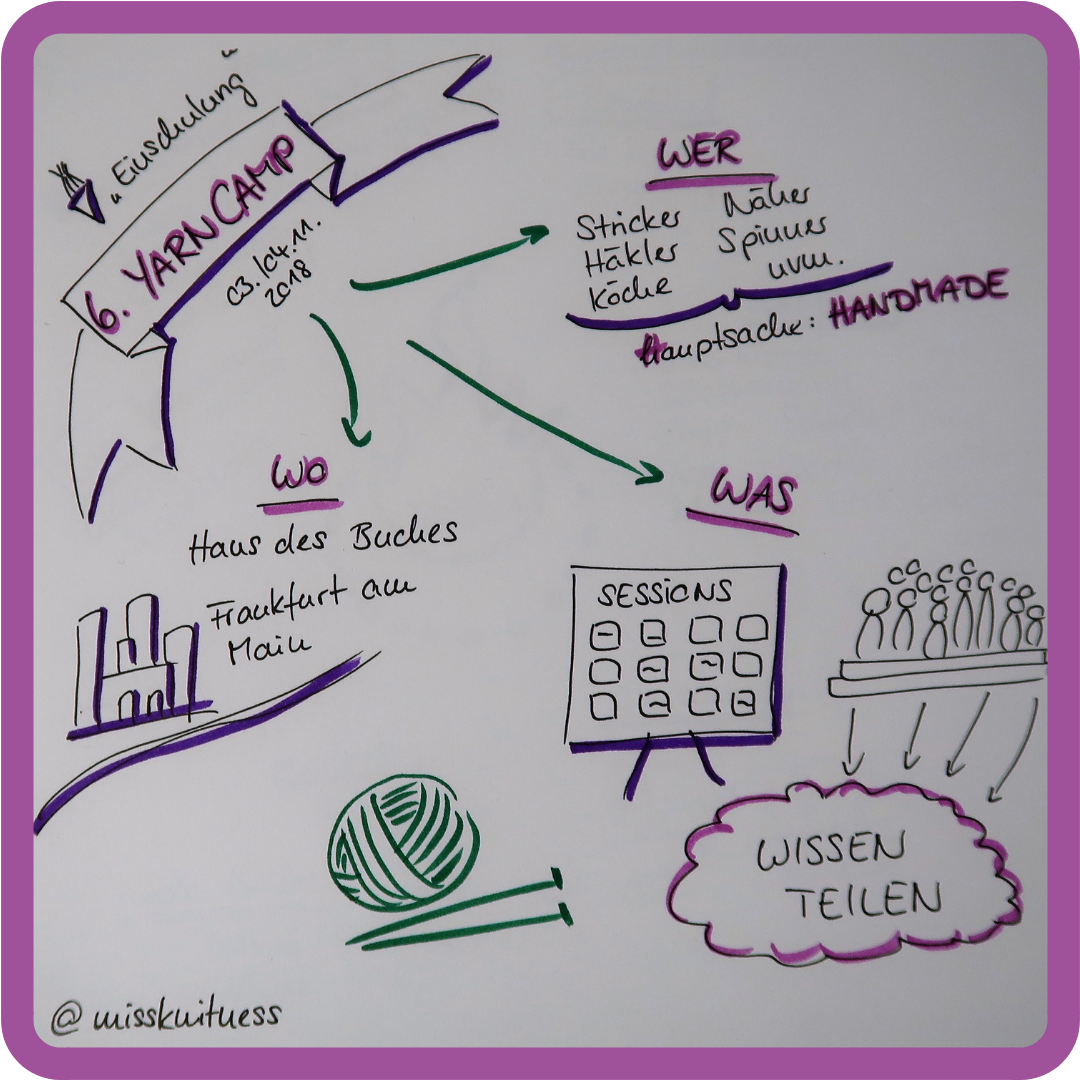 „Einschulung“
6. YARNCAMP
03./04.11.
2018
WER
Stricker
Häkler
Köche
Näher
Spinner
uvm.
Hauptsache: HANDMADE
WO
Haus des Buches
Frankfurt am
Main
WAS
SESSIONS
WISSEN
TEILEN
@missknitness